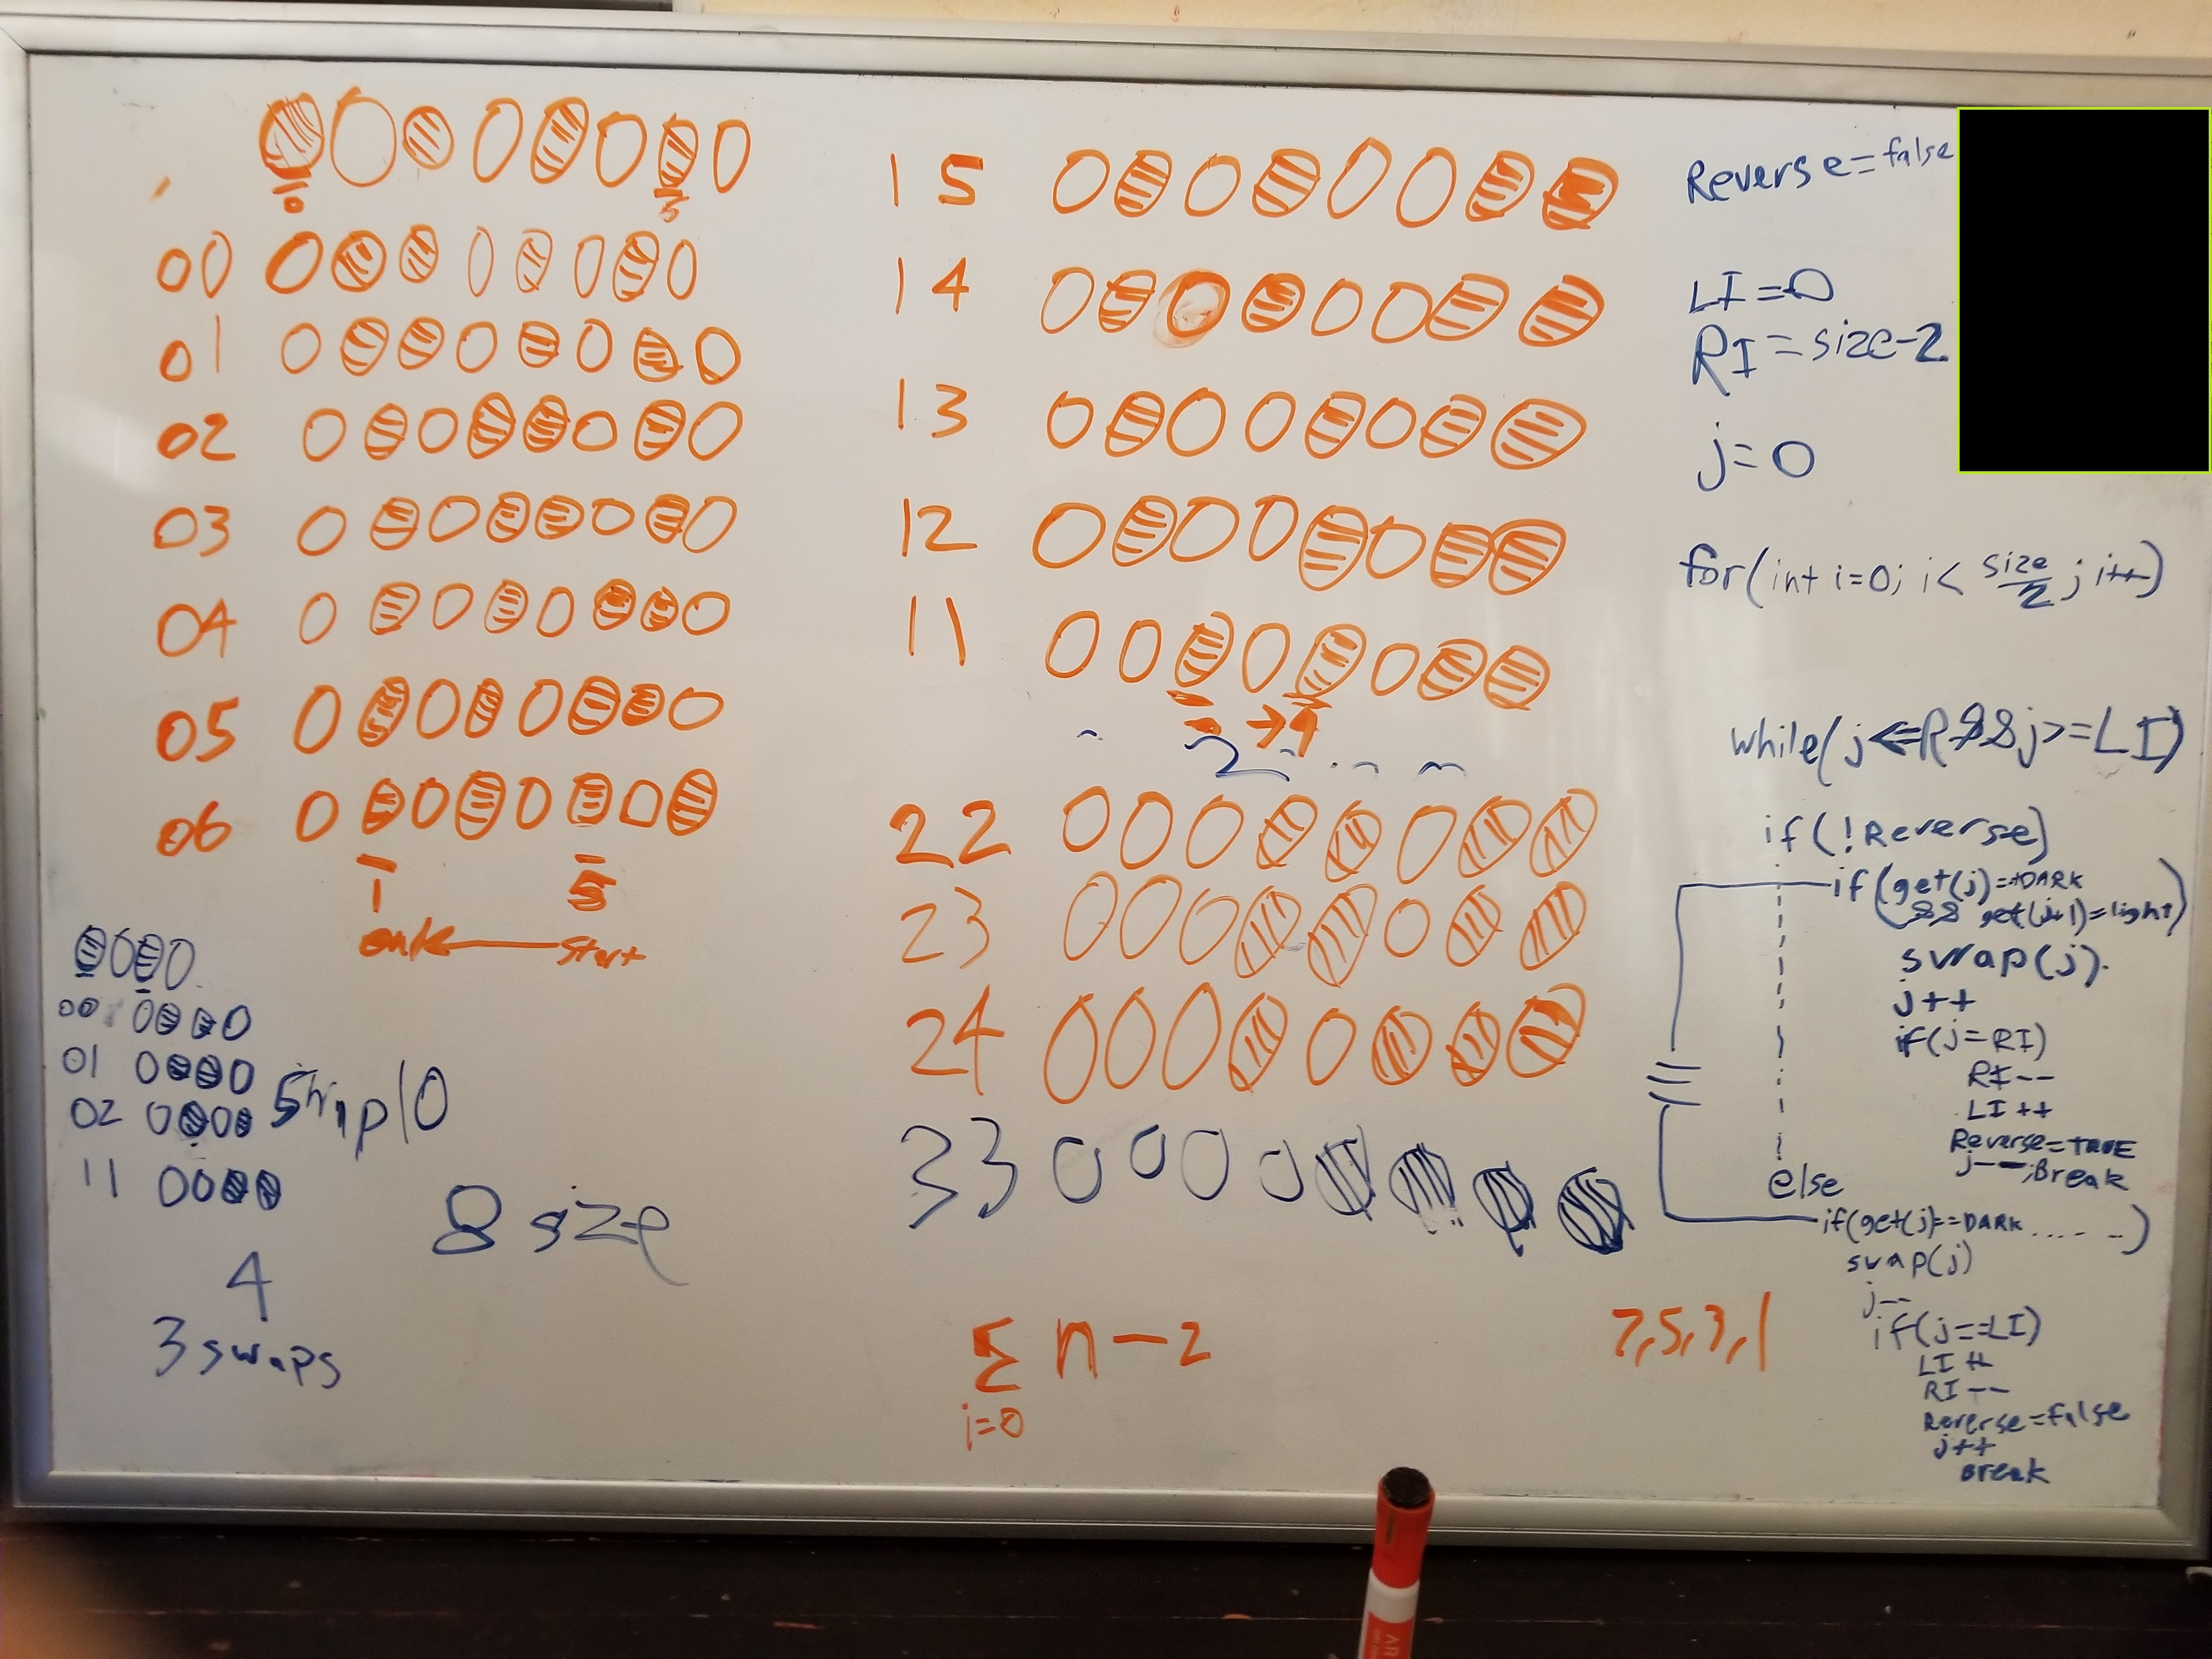 0
5
00
01
02
03
04
05
06
1
5
end
start
00
01
02
11
swap 10
8 size
4
3 swaps
15
14
13
12
11
→ 4
2
22
23
24
33
Σ n-2
i=0
7,5,3,1
Reverse=false
LI=0
RI=size-2
j=0
for(int i=0; i< size/2; i++)
while(j<=RI&&j>=LI)
if(!Reverse)
if(get(j)==DARK
&& get(j+1)=light)
swap(j).
j++
if(j=RI)
RI--
LI++
Reverse=TRUE
j--;Break
else
if(get(j)==DARK.......)
swap(j)
j--
if(j==LI)
LI++
RI--
Reverse=false
j++
Break